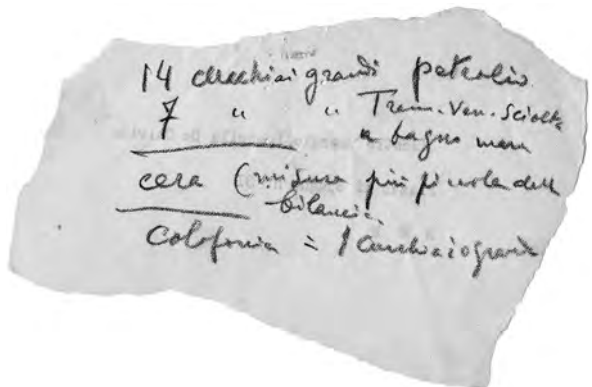 14 cucchiai grandi petrolio
7 " " Trem. Ven. Sciolta
a bagno maria
cera (misura più piccola della
bilancia.
colofonia = 1 cucchiaio grande